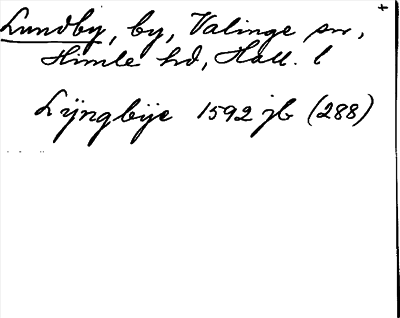 Lundby, by, Valinge sn,
Himle hd, Hall. l
Lÿngbÿe 1592 jb (288)